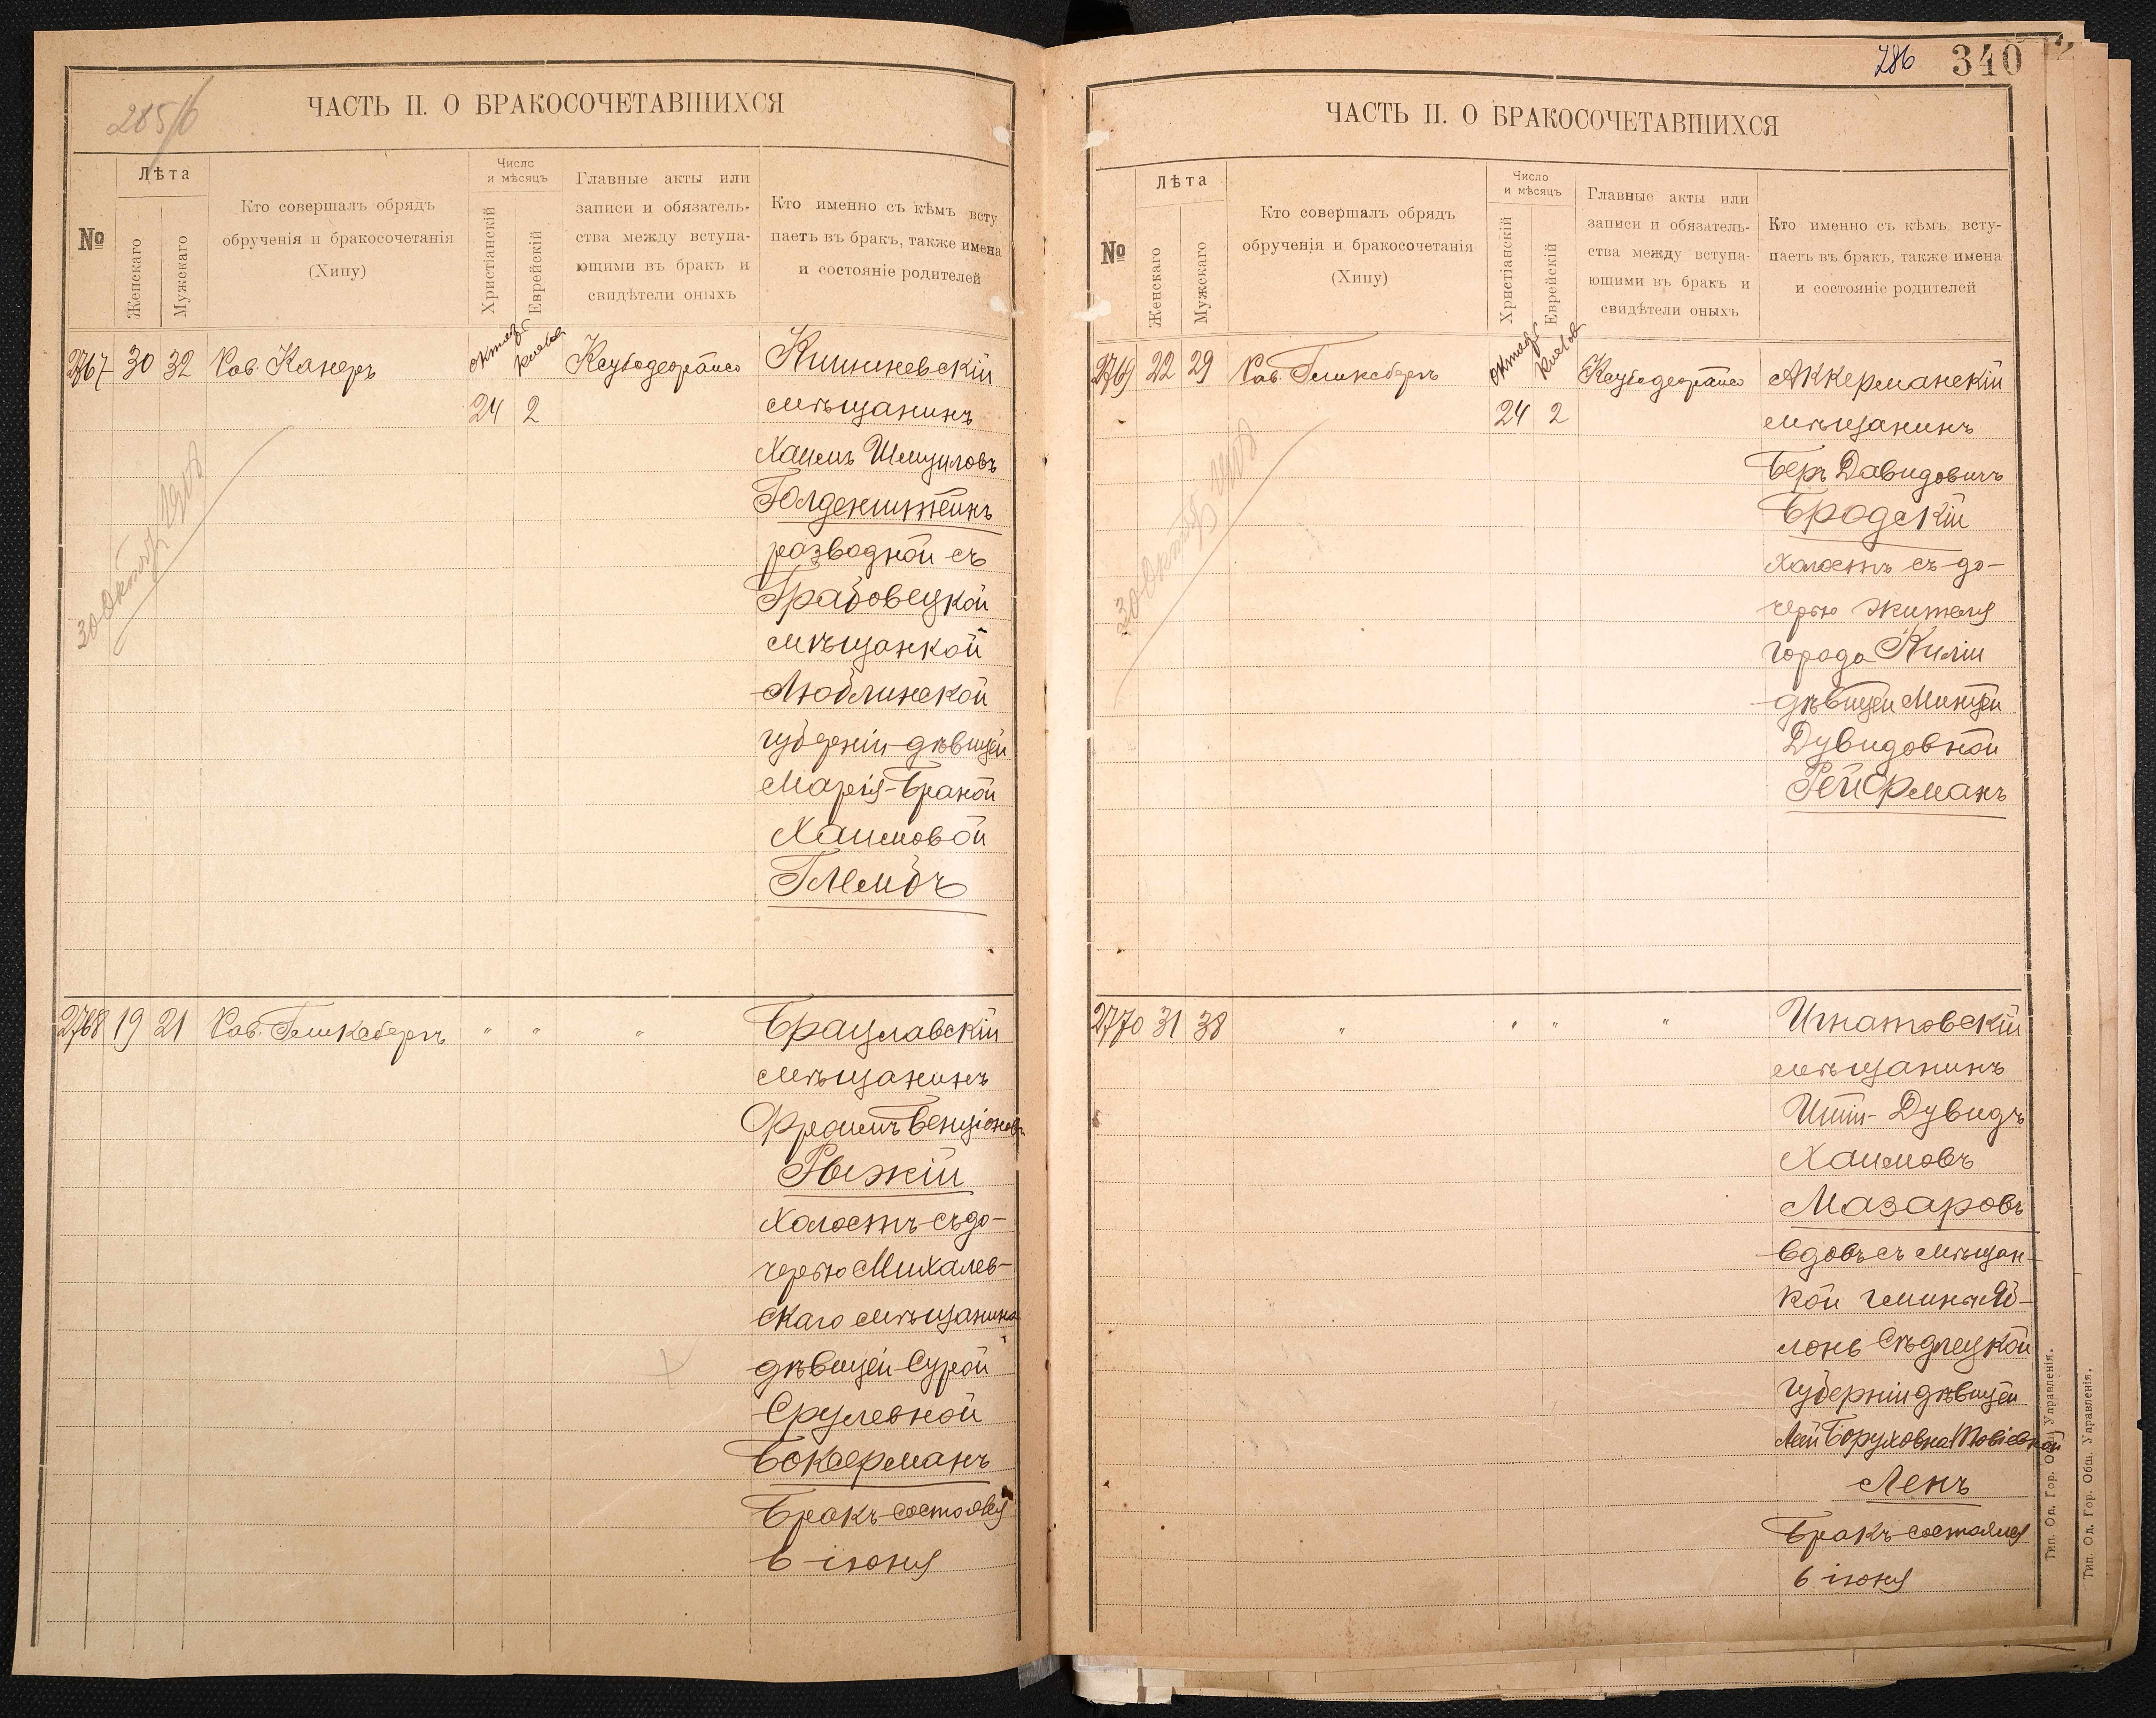 285/6
ЧАСТЬ II. О БРАКОСОЧЕТАВШИХСЯ
№
Лѣта
Женскаго
Мужскаго
Кто совершалъ обрядъ
обрученія и бракосочетанія
(Хипу)
Число
и мѣсяцъ
Христіанскій
Еврейскій
Главные акты или
записи и обязатель-
ства между вступа-
ющими въ бракъ и
свидѣтели оныхъ
Кто именно съ кѣмъ всту
паетъ въ бракъ, также имена
и состояніе родителей
2767 30 32 Кишиневскій
24 2 мѣщанинъ
Хаимъ Шмуиловъ
Голденштейнъ
разводной съ
Грабовецкой
мѣщанкой
Люблинской
губерніи дѣвицей
Марія-Браной
Хаимовой
2768 19 21 " " " Брацлавскій
мѣщанинъ
Бенціоновъ
Рыжій
холостъ съ до-
черью Михалев-
скаго мѣщанина
дѣвицей Сурой
Срулевной
Боксерманъ
Бракъ состоялся
6 іюня
286 340
ЧАСТЬ II. О БРАКОСОЧЕТАВШИХСЯ
№
Лѣта
Женскаго
Мужскаго
Кто совершалъ обрядъ
обрученія и бракосочетанія
(Хипу)
Число
и мѣсяцъ
Христіанскій
Еврейскій
Главные акты или
записи и обязатель-
ства между вступа-
ющими въ бракъ и
свидѣтели оныхъ
Кто именно съ кѣмъ всту-
паетъ въ бракъ, также имена
и состояніе родителей
2769 22 29 Аккерманскій
24 2 мѣщанинъ
Беръ Давидовичъ
Бродскій
холостъ съ до-
черью жителя
города Киліи
дѣвицей Минцей
Дувидовной
Рейферманъ
2770 31 38 " " " " Игнатовскій
мѣщанинъ
Дувидъ
Хаимовъ
Мазаровъ
вдовъ съ мѣщан-
кой
Сѣдлецкой
губерніи дѣвицей
Леи Боруховна
Ленъ
Бракъ состоялся
6 іюня
Тип. Од. Гор. Общ. Управленія.
Тип. Од. Гор. Общ. Управленія.